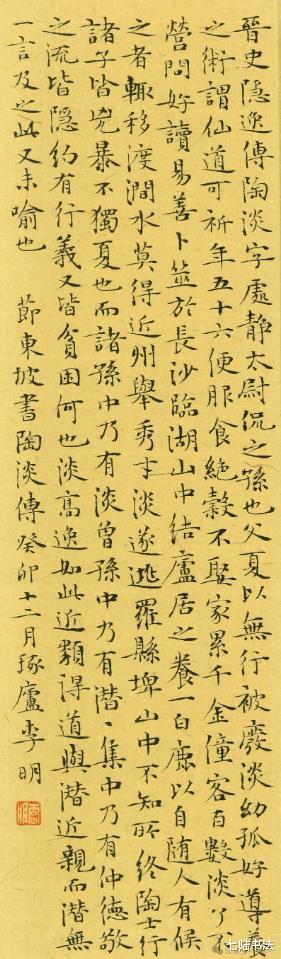 晉史隱逸傳陶淡字處靜太尉侃之孫也父夏以無行被廢淡幼孤好導養
之術謂仙道可祈年五十六便服食絕穀不娶家累千金僮客百數淡了不
營問好讀易善卜筮於長沙臨湖山中結廬居之養一白鹿以自隨人有候
之者輒移渡澗水莫得近州舉秀才淡遂逃羅縣埤山中不知所終陶士行
諸子皆兇暴不獨夏也而諸孫中乃有淡曾孫中乃有潛潛集中乃有仲德敬
之流皆隱約有行義又皆貧困何也淡高逸如此近類得道與潛近親而潛無
一言及之此又未喻也 節東坡書陶淡傳癸卯十二月琢廬李明
七陆书法